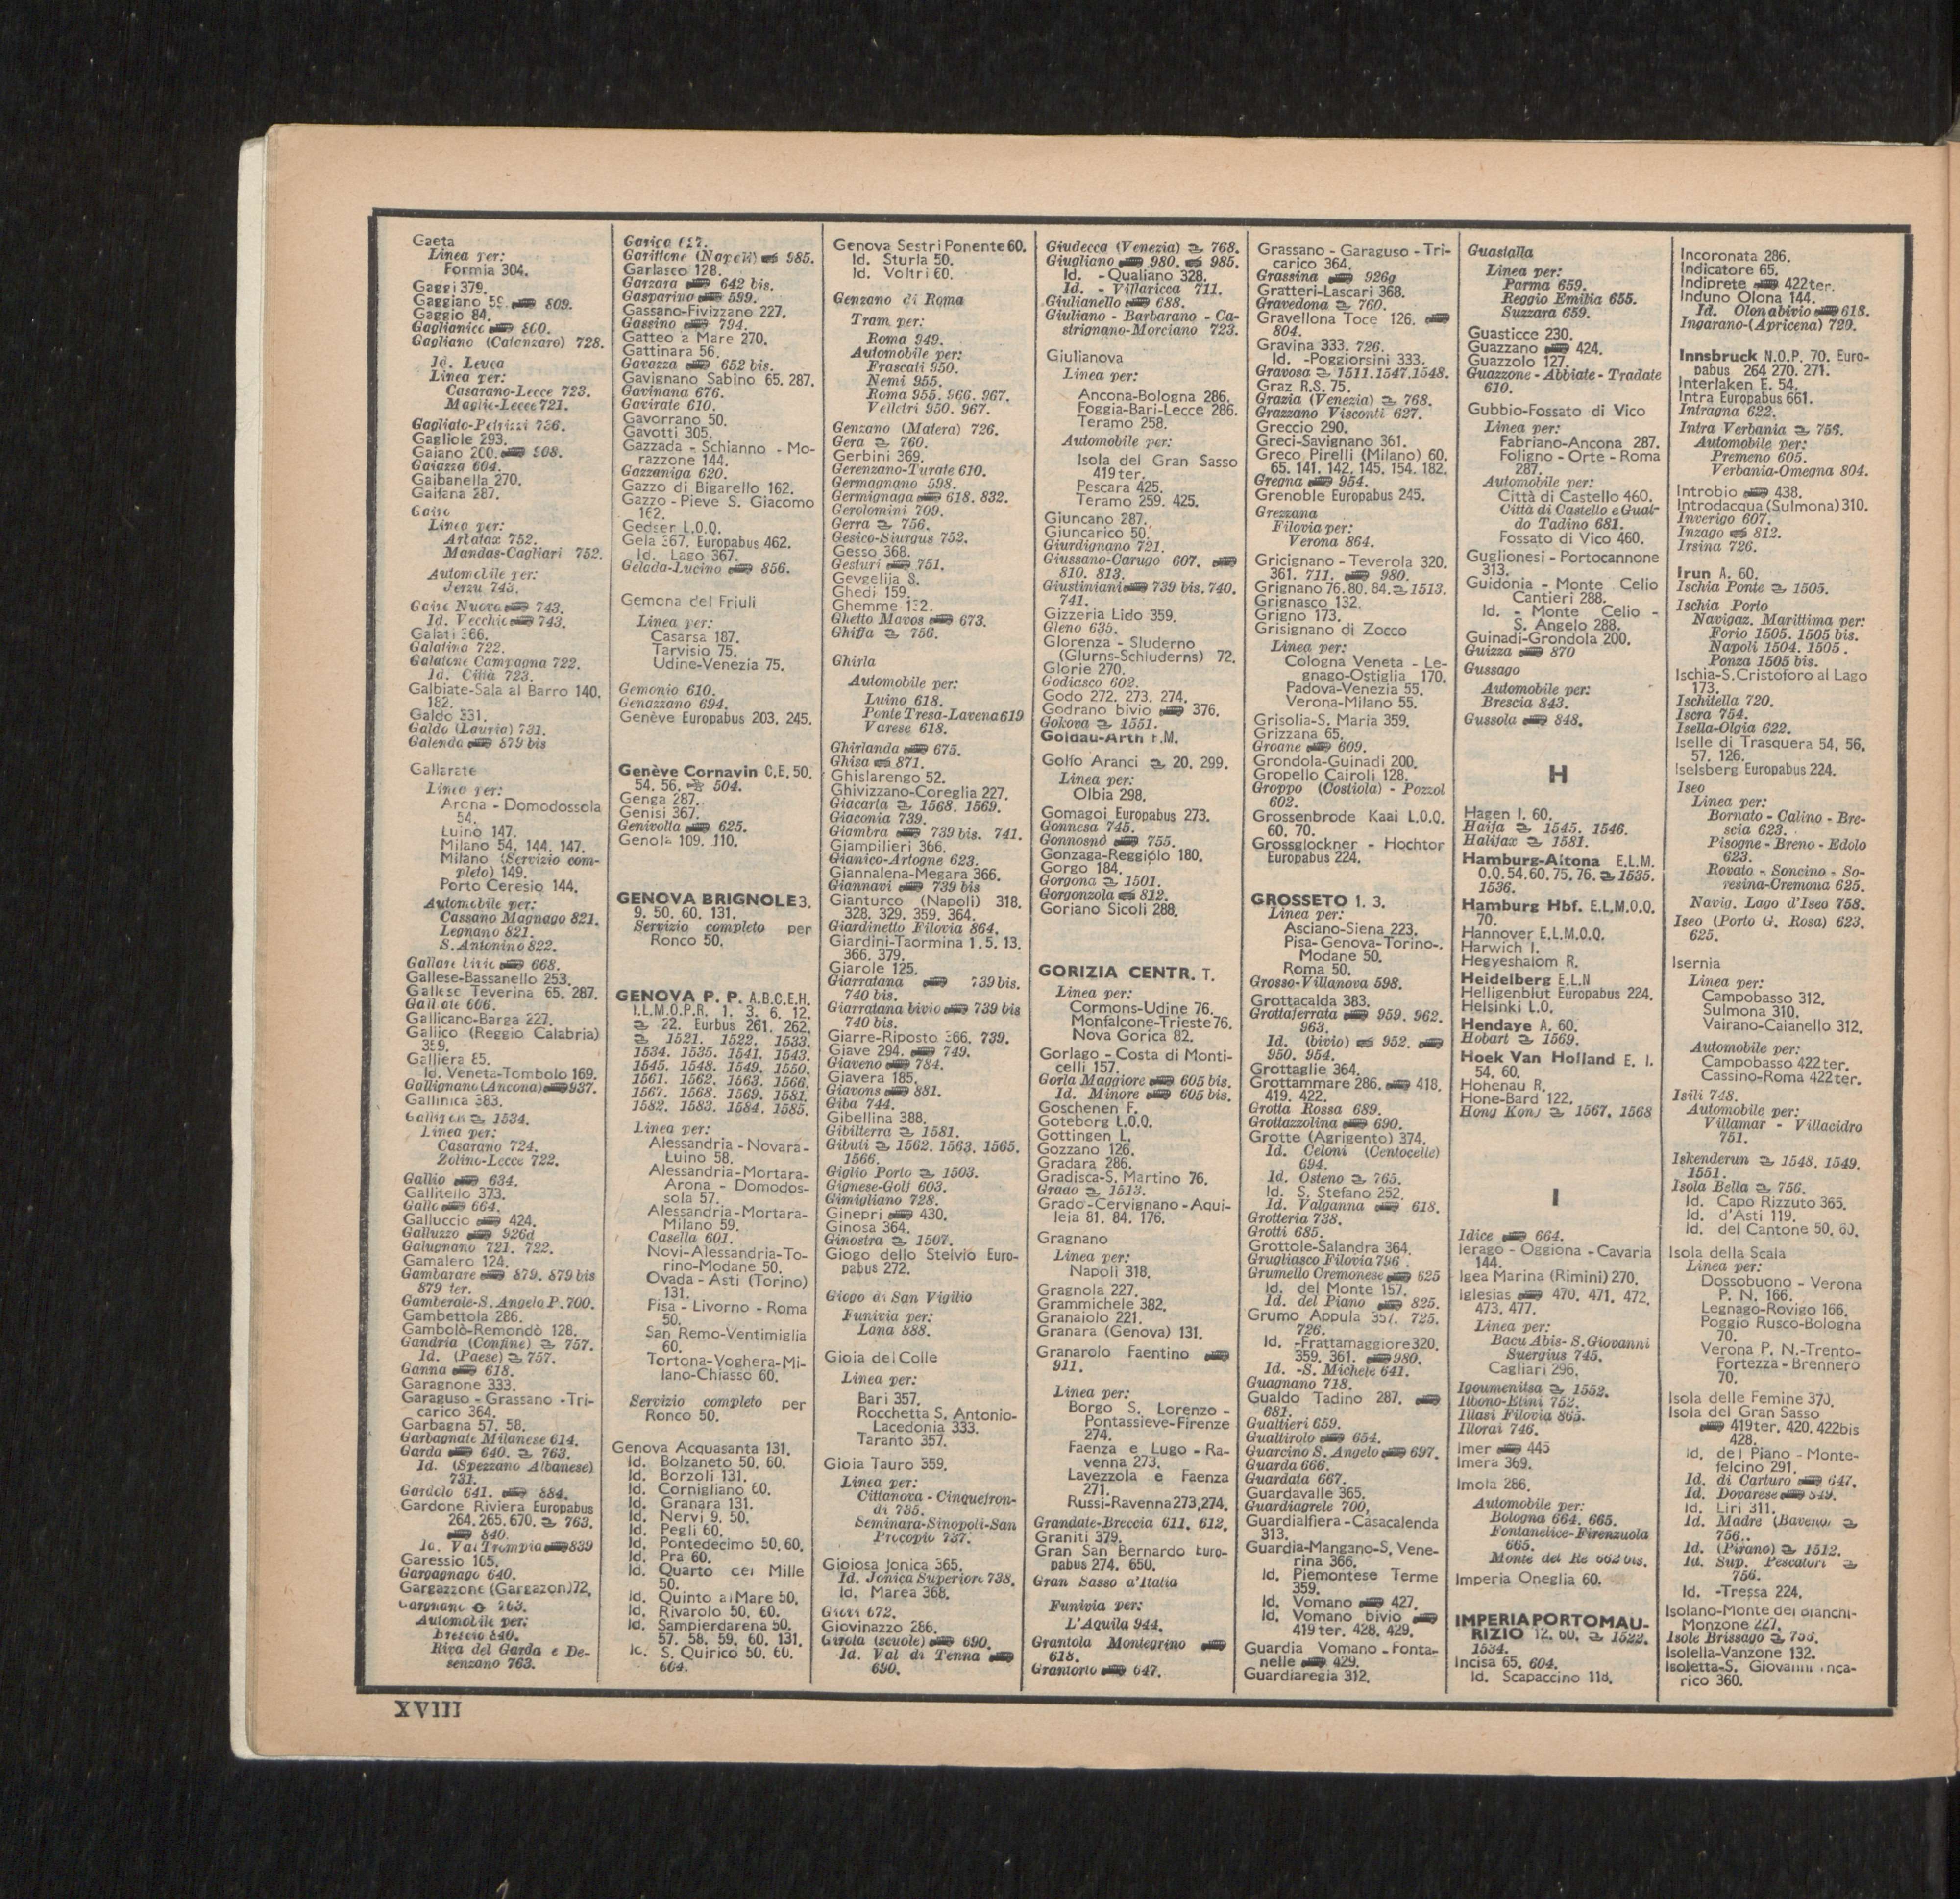 Gaeta
Linea per:
Formia 304.
Gaggi 379.
Gaggiano 59. 809.
Gaggio 84.
Gaglianico 800.
Gagliano (Catanzaro) 728.
Id. Leuca
Linea per:
Casarano-Lecce 723.
Maglie-Lecce 721.
Gagliato-Petrizzi 736.
Gagliole 293.
Gaiano 200. 908.
Gaiazza 604.
Gaibanella 270.
Gaifana 287.
Gairo
Linea per:
Arbatax 752.
Mandas-Cagliari 752.
Automobile per:
Jerzu 743.
Gairo Nuovo 743.
Id. Vecchio 743.
Galati 366.
Galatina 722.
Galatone Campagna 722.
Id. Città 723.
Galbiate-Sala al Barro 140.
182.
Galdo 331.
Galdo (Lauria) 731.
Galenda 879 bis
Gallarate
Linea per:
Arona - Domodossola
54.
Luino 147.
Milano 54. 144. 147.
Milano (Servizio com-
pleto) 149.
Porto Ceresio 144.
Automobile per:
Cassano Magnago 821.
Legnano 821.
S. Antonino 822.
Gallare bivio 668.
Gallese-Bassanello 253.
Gallese Teverina 65. 287.
Galliate 606.
Gallicano-Barga 227.
Gallico (Reggio Calabria)
359.
Galliera 65.
Id. Veneta-Tombolo 169.
Gallignano (Ancona) 937.
Gallinica 383.
Gallipoli 1534.
Linea per:
Casarano 724.
Zollino-Lecce 722.
Gallio 634.
Gallitello 373.
Gallo 664.
Galluccio 424.
Galluzzo 926d
Galugnano 721. 722.
Gamalero 124.
Gambarare 879. 879 bis
879 ter.
Gamberale-S. Angelo P. 700.
Gambettola 286.
Gambolò-Remondò 128.
Gandria (Confine) 757.
Id. (Paese) 757.
Ganna 618.
Garagnone 333.
Garaguso - Grassano - Tri-
carico 364.
Garbagna 57. 58.
Garbagnate Milanese 614.
Garda 640. 763.
Id. (Spezzano Albanese)
731.
Gardolo 641. 884.
Gardone Riviera Europabus
264. 265. 670. 763.
840.
Id. Val Trompia 839
Garessio 105.
Gargagnago 640.
Gargazzone (Gargazon) 72.
Gargnano 763.
Automobile per:
Brescia 840.
Riva del Garda e De-
senzano 763.
Gariga 627.
Garittone (Napoli) 985.
Garlasco 128.
Garzara 642 bis.
Gasparina 599.
Gassano-Fivizzano 227.
Gassino 794.
Gatteo a Mare 270.
Gattinara 56.
Gavazza 652 bis.
Gavignano Sabino 65. 287.
Gavinana 676.
Gavirate 610.
Gavorrano 50.
Gavotti 305.
Gazzada - Schianno - Mo-
razzone 144.
Gazzaniga 620.
Gazzo di Bigarello 162.
Gazzo - Pieve S. Giacomo
162.
Gedser L.O.Q.
Gela 367. Europabus 462.
Id. Lago 367.
Gelada-Lucino 856.
Gemona del Friuli
Linea per:
Casarsa 187.
Tarvisio 75.
Udine-Venezia 75.
Gemonio 610.
Genazzano 694.
Genève Europabus 203. 245.
Genève Cornavin C.E. 50.
54. 56. 504.
Genga 287.
Genisi 367.
Genivolta 625.
Genola 109. 110.
GENOVA BRIGNOLE 3.
9. 50. 60. 131.
Servizio completo per
Ronco 50.
GENOVA P. P. A.B.C.E.H.
I.L.M.O.P.R. 1. 3. 6. 12.
22. Eurbus 261. 262.
1521. 1522. 1533.
1534. 1535. 1541. 1543.
1545. 1548. 1549. 1550.
1561. 1562. 1563. 1566.
1567. 1568. 1569. 1581.
1582. 1583. 1584. 1585.
Linea per:
Alessandria - Novara-
Luino 58.
Alessandria-Mortara-
Arona - Domodos-
sola 57.
Alessandria-Mortara-
Milano 59.
Casella 601.
Novi-Alessandria-To-
rino-Modane 50.
Ovada - Asti (Torino)
131.
Pisa - Livorno - Roma
50.
San Remo-Ventimiglia
60.
Tortona-Voghera-Mi-
lano-Chiasso 60.
Servizio completo per
Ronco 50.
Genova Acquasanta 131.
Id. Bolzaneto 50. 60.
Id. Borzoli 131.
Id. Cornigliano 60.
Id. Granara 131.
Id. Nervi 9. 50.
Id. Pegli 60.
Id. Pontedecimo 50. 60.
Id. Pra 60.
Id. Quarto dei Mille
50.
Id. Quinto al Mare 50.
Id. Rivarolo 50. 60.
Id. Sampierdarena 50.
57. 58. 59. 60. 131.
Id. S. Quirico 50. 60.
604.
Genova Sestri Ponente 60.
Id. Sturla 50.
Id. Voltri 60.
Genzano di Roma
Tram per:
Roma 949.
Automobile per:
Frascati 950.
Nemi 955.
Roma 955. 966. 967.
Velletri 950. 967.
Genzano (Matera) 726.
Gera 760.
Gerbini 369.
Gerenzano-Turate 610.
Germagnano 598.
Germignaga 618. 832.
Gerolomini 709.
Gerra 756.
Gesico-Siurgus 752.
Gesso 368.
Gesturi 751.
Gevgelija S.
Ghedi 159.
Ghemme 132.
Ghetto Mavos 673.
Ghiffa 756.
Ghirla
Automobile per:
Luino 618.
Ponte Tresa-Lavena 619
Varese 618.
Ghirlanda 675.
Ghisa 871.
Ghislarengo 52.
Ghivizzano-Coreglia 227.
Giacarla 1568. 1569.
Giaconia 739.
Giambra 739 bis. 741.
Giampilieri 366.
Gianico-Artogne 623.
Giannalena-Megara 366.
Giannavi 739 bis
Gianturco (Napoli) 318.
328. 329. 359. 364.
Giardinetto Filovia 864.
Giardini-Taormina 1. 5. 13.
366. 379.
Giarole 125.
Giarratana 739 bis.
740 bis.
Giarratana bivio 739 bis
740 bis.
Giarre-Riposto 366. 739.
Giave 294. 749.
Giaveno 784.
Giavera 185.
Giavons 881.
Giba 744.
Gibellina 388.
Gibilterra 1581.
Gibuti 1562. 1563. 1565.
1566.
Giglio Porto 1503.
Gignese-Golf 603.
Gimigliano 728.
Ginepri 430.
Ginosa 364.
Ginostra 1507.
Giogo dello Stelvio Euro-
pabus 272.
Giogo di San Vigilio
Funivia per:
Lana 888.
Gioia del Colle
Linea per:
Bari 357.
Rocchetta S. Antonio-
Lacedonia 333.
Taranto 357.
Gioia Tauro 359.
Linea per:
Cittanova - Cinquefron-
di 735.
Seminara-Sinopoli-San
Procopio 737.
Gioiosa Jonica 365.
Id. Jonica Superiore 738.
Id. Marea 368.
Giovi 672.
Giovinazzo 286.
Girola (scuole) 690.
Id. Val di Tenna
690.
Giudecca (Venezia) 768.
Giugliano 980. 985.
Id. - Qualiano 328.
Id. - Villaricca 711.
Giulianello 688.
Giuliano - Barbarano - Ca-
strignano-Morciano 723.
Giulianova
Linea per:
Ancona-Bologna 286.
Foggia-Bari-Lecce 286.
Teramo 258.
Automobile per:
Isola del Gran Sasso
419 ter.
Pescara 425.
Teramo 259. 425.
Giuncano 287.
Giuncarico 50.
Giurdignano 721.
Giussano-Carugo 607.
810. 813.
Giustiniani 739 bis. 740.
741.
Gizzeria Lido 359.
Gleno 635.
Glorenza - Sluderno
(Glurns-Schluderns) 72.
Glorie 270.
Godiasco 602.
Godo 272. 273. 274.
Godrano bivio 376.
Gokova 1551.
Goldau-Arth F.M.
Golfo Aranci 20. 299.
Linea per:
Olbia 298.
Gomagoi Europabus 273.
Gonnesa 745.
Gonnosnò 755.
Gonzaga-Reggiolo 180.
Gorgo 184.
Gorgona 1501.
Gorgonzola 812.
Goriano Sicoli 288.
GORIZIA CENTR. T.
Linea per:
Cormons-Udine 76.
Monfalcone-Trieste 76.
Nova Gorica 82.
Gorlago - Costa di Monti-
celli 157.
Gorla Maggiore 605 bis.
Id. Minore 605 bis.
Goschenen F.
Goteborg L.O.Q.
Gottingen L.
Gozzano 126.
Gradara 286.
Gradisca-S. Martino 76.
Grado 1513.
Grado-Cervignano-Aqui-
leia 81. 84. 176.
Gragnano
Linea per:
Napoli 318.
Gragnola 227.
Grammichele 382.
Granaiolo 221.
Granara (Genova) 131.
Granarolo Faentino
911.
Linea per:
Borgo S. Lorenzo -
Pontassieve-Firenze
274.
Faenza e Lugo - Ra-
venna 273.
Lavezzola e Faenza
271.
Russi-Ravenna 273, 274.
Grandate-Breccia 611. 612.
Graniti 379.
Gran San Bernardo Euro-
pabus 274. 650.
Gran Sasso d'Italia
Funivia per:
L'Aquila 944.
Grantola Montegrino
618.
Grantorto 647.
Grassano - Garaguso - Tri-
carico 364.
Grassina 926g
Gratteri-Lascari 368.
Gravedona 760.
Gravellona Toce 126.
804.
Gravina 333. 726.
Id. -Poggiorsini 333.
Gravosa 1511. 1547. 1548.
Graz R.S. 75.
Grazia (Venezia) 768.
Grazzano Visconti 627.
Greccio 290.
Greci-Savignano 361.
Greco Pirelli (Milano) 60.
65. 141. 142. 145. 154. 182.
Gregna 954.
Grenoble Europabus 245.
Grezzana
Filovia per:
Verona 864.
Gricignano - Teverola 320.
361. 711. 980.
Grignano 76. 80. 84. 1513.
Grignasco 132.
Grigno 173.
Grisignano di Zocco
Linea per:
Cologna Veneta - Le-
gnago-Ostiglia 170.
Padova-Venezia 55.
Verona-Milano 55.
Grisolia-S. Maria 359.
Grizzana 65.
Groane 609.
Grondola-Guinadi 200.
Gropello Cairoli 128.
Groppo (Costiola) - Pozzol
602.
Grossenbrode Kaai L.O.Q.
60. 70.
Grossglockner - Hochtor
Europabus 224.
GROSSETO 1. 3.
Linea per:
Asciano-Siena 223.
Pisa-Genova-Torino-
Modane 50.
Roma 50.
Grosso-Villanova 598.
Grottacalda 383.
Grottaferrata 959. 962.
963.
Id. (bivio) 952.
950. 954.
Grottaglie 364.
Grottammare 286. 418.
419. 422.
Grotta Rossa 689.
Grottazzolina 690.
Grotte (Agrigento) 374.
Id. Celoni (Centocelle)
694.
Id. Osteno 765.
Id. S. Stefano 252.
Id. Valganna 618.
Grotteria 738.
Grotti 685.
Grottole-Salandra 364.
Grugliasco Filovia 796.
Grumello Cremonese 625
Id. del Monte 157.
Id. del Piano 825.
Grumo Appula 357. 725.
726.
Id. -Frattamaggiore 320.
359. 361. 980.
Id. -S. Michele 641.
Guagnano 718.
Gualdo Tadino 287.
681.
Gualtieri 659.
Gualtirolo 654.
Guarcino S. Angelo 697.
Guarda 666.
Guardata 667.
Guardavalle 365.
Guardiagrele 700.
Guardialfiera-Casacalenda
313.
Guardia-Mangano-S. Vene-
rina 366.
Id. Piemontese Terme
359.
Id. Vomano 427.
Id. Vomano bivio
419 ter. 428. 429.
Guardia Vomano - Fonta-
nelle 429.
Guardiaregia 312.
Guastalla
Linea per:
Parma 659.
Reggio Emilia 655.
Suzzara 659.
Guasticce 230.
Guazzano 424.
Guazzolo 127.
Guazzone-Abbiate-Tradate
610.
Gubbio-Fossato di Vico
Linea per:
Fabriano-Ancona 287.
Foligno - Orte - Roma
287.
Automobile per:
Città di Castello 460.
Città di Castello e Gual-
do Tadino 681.
Fossato di Vico 460.
Guglionesi - Portocannone
313.
Guidonia - Monte Celio
Cantieri 288.
Id. - Monte Celio -
S. Angelo 288.
Guinadi-Grondola 200.
Guizza 870
Gussago
Automobile per:
Brescia 843.
Gussola 848.
H
Hagen I. 60.
Haifa 1545. 1546.
Halifax 1581.
Hamburg-Altona E.L.M.
O.Q. 54. 60. 75. 76. 1535.
1536.
Hamburg Hbf. E.L.M.O.Q.
70.
Hannover E.L.M.O.Q.
Harwich I.
Hegyeshalom R.
Heidelberg E.L.N
Helligenblut Europabus 224.
Helsinki L.O.
Hendaye A. 60.
Hobart 1569.
Hoek Van Holland E. I.
54. 60.
Hohenau R.
Hone-Bard 122.
Hong Kong 1567. 1568
I
Idice 664.
Ierago - Oggiona - Cavaria
144.
Igea Marina (Rimini) 270.
Iglesias 470. 471. 472.
473. 477.
Linea per:
Bacu Abis-S. Giovanni
Suergius 745.
Cagliari 296.
Igoumenitsa 1552.
Ilbono-Elini 752.
Illasi Filovia 865.
Illorai 746.
Imer 445
Imera 369.
Imola 286.
Automobile per:
Bologna 664. 665.
Fontanelice-Firenzuola
665.
Monte del Re 662 bis.
Imperia Oneglia 60.
IMPERIA PORTOMAU-
RIZIO 12. 60. 1522.
1534.
Incisa 65. 604.
Id. Scapaccino 118.
Incoronata 286.
Indicatore 65.
Indiprete 422 ter.
Induno Olona 144.
Id. Olona bivio 618.
Ingarano-(Apricena) 729.
Innsbruck N.O.P. 70. Euro-
pabus 264 270. 271.
Interlaken E. 54.
Intra Europabus 661.
Intragna 622.
Intra Verbania 756.
Automobile per:
Premeno 605.
Verbania-Omegna 804.
Introbio 438.
Introdacqua (Sulmona) 310.
Inverigo 607.
Inzago 812.
Irsina 726.
Irun A. 60.
Ischia Ponte 1505.
Ischia Porto
Navigaz. Marittima per:
Forio 1505. 1505 bis.
Napoli 1504. 1505.
Ponza 1505 bis.
Ischia-S. Cristoforo al Lago
173.
Ischitella 720.
Iscra 754.
Isella-Olgia 622.
Iselle di Trasquera 54. 56.
57. 126.
Iselsberg Europabus 224.
Iseo
Linea per:
Bornato - Calino - Bre-
scia 623.
Pisogne - Breno - Edolo
623.
Rovato - Soncino - So-
resina-Cremona 625.
Navig. Lago d'Iseo 758.
Iseo (Porto G. Rosa) 623.
625.
Isernia
Linea per:
Campobasso 312.
Sulmona 310.
Vairano-Caianello 312.
Automobile per:
Campobasso 422 ter.
Cassino-Roma 422 ter.
Isili 748.
Automobile per:
Villamar - Villacidro
751.
Iskenderun 1548. 1549.
1551.
Isola Bella 756.
Id. Capo Rizzuto 365.
Id. d'Asti 119.
Id. del Cantone 50. 60.
Isola della Scala
Linea per:
Dossobuono - Verona
P. N. 166.
Legnago-Rovigo 166.
Poggio Rusco-Bologna
70.
Verona P. N.-Trento-
Fortezza - Brennero
70.
Isola delle Femine 370.
Isola del Gran Sasso
419 ter. 420. 422 bis
428.
Id. del Piano - Monte-
felcino 291.
Id. di Carturo 647.
Id. Dovarese 849.
Id. Liri 311.
Id. Madre (Baveno)
756.
Id. (Pirano) 1512.
Id. Sup. Pescatori
756.
Id. -Tressa 224.
Isolano-Monte dei Bianchi-
Monzone 227.
Isole Brissago 756.
Isolella-Vanzone 132.
Isoletta-S. Giovanni Inca-
rico 360.
XVIII